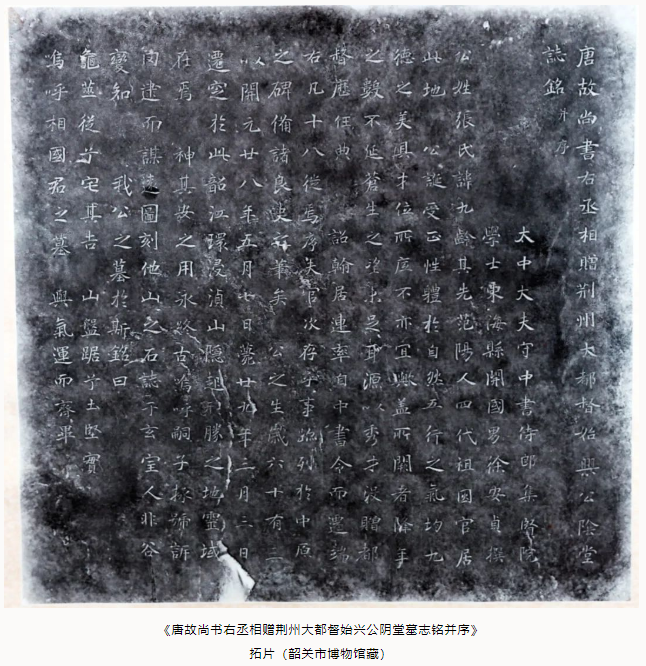 唐故尚書右丞相贈荊州大都督始興公陰堂
誌銘并序
太中大夫守中書侍郎集賢院
學士東海縣開國男徐安貞撰
公姓張氏諱九齡其先范陽人四代祖因官居
此地 公誕受正性體於自然五行之氣均九
德之美俱才位所底不亦宜歟蓋所闕者降年
之數不延蒼生之望未足耳源以秀才没贈都
督歷任典 誥翰居連率自中書令而遷端
右凡十八徙焉序夫官次存乎事跡列於中原
之碑備諸良史之筆矣 公之生歲六十有三
以開元廿八年五月七日薨廿九年三月三日
遷窆於此韶江環浸湞山隱起形勝之地靈域
在焉 神其安之用永終古嗚呼嗣子拯號訴
罔逮而謀遠圖刻他山之石誌于玄室人非谷
變知 我公之墓於斯銘曰
龜筮從兮宅其吉 山盤踞兮土堅實
嗚呼相國君之墓 與氣運而齊畢
《唐故尚书右丞相赠荆州大都督始兴公阴堂墓志铭并序》
拓片（韶关市博物馆藏）